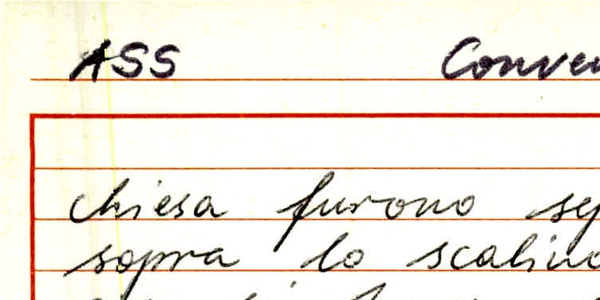 ASS Conven
chiesa furono sep
sopra lo scalino